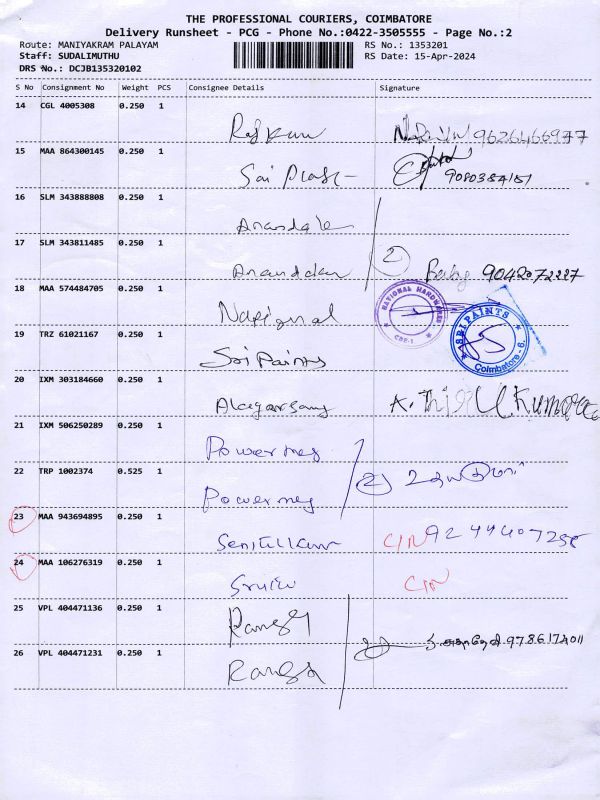 THE PROFESSIONAL COURIERS, COIMBATORE
Delivery Runsheet - PCG - Phone No.:0422-3505555 - Page No.:2
Route: MANIYAKRAM PALAYAM RS No.: 1353201
Staff: SUDALIMUTHU RS Date: 15-Apr-2024
DRS No.: DCJB135320102
S No Consignment No Weight PCS Consignee Details Signature
14 CGL 4005308 0.250 1
Rajkum 9626466977
15 MAA 864300145 0.250 1
Sai Prash 9080384151
16 SLM 343888808 0.250 1
17 SLM 343811485 0.250 1
2
Anandan Baby 9042072227
18 MAA 574484705 0.250 1
National
NATIONAL HARDWARES
CBE-1
SRI PAINTS
Coimbatore - 6.
19 TRZ 61021167 0.250 1
Sri Paints
20 IXM 303184660 0.250 1
Alagarsamy A. Thiru Kumaran
21 IXM 506250289 0.250 1
Powerney
22 TRP 1002374 0.525 1
2
Powerney
23 MAA 943694895 0.250 1
Senthilkum C/N
24 MAA 106276319 0.250 1
C/N
25 VPL 404471136 0.250 1
Ranga
26 VPL 404471231 0.250 1
Ranga